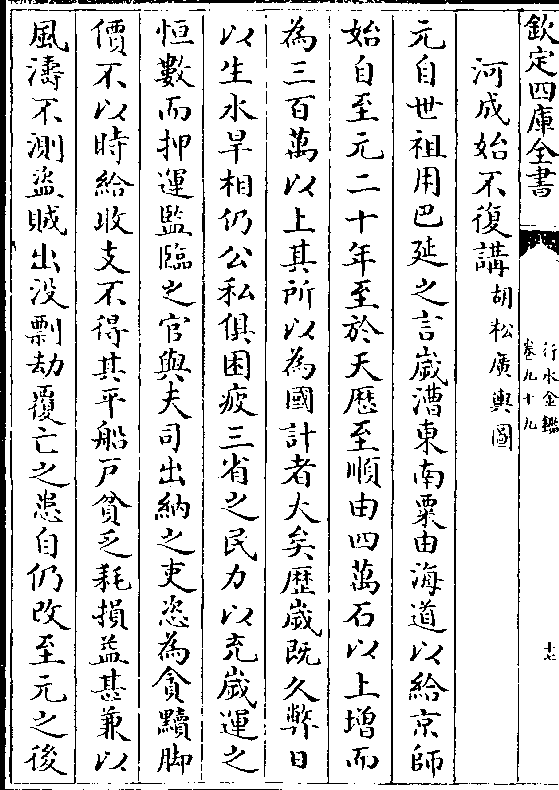 欽定四庫全書
行水金鑑
卷九十九
十五
河成始不復講胡松廣輿圖
元自世祖用巴延之言歲漕東南粟由海道以給京師
始自至元二十年至於天歷至順由四萬石以上增而
為三百萬以上其所以為國計者大矣歷歲既久弊日
以生水旱相仍公私俱困疲三省之民力以充歲運之
恒數而抑運監臨之官與夫司出納之吏恣為貪黷脚
價不以時給收支不得其平船戶貧乏耗損益甚兼以
風濤不測盜賊出沒剽劫覆亡之患自仍改至元之後